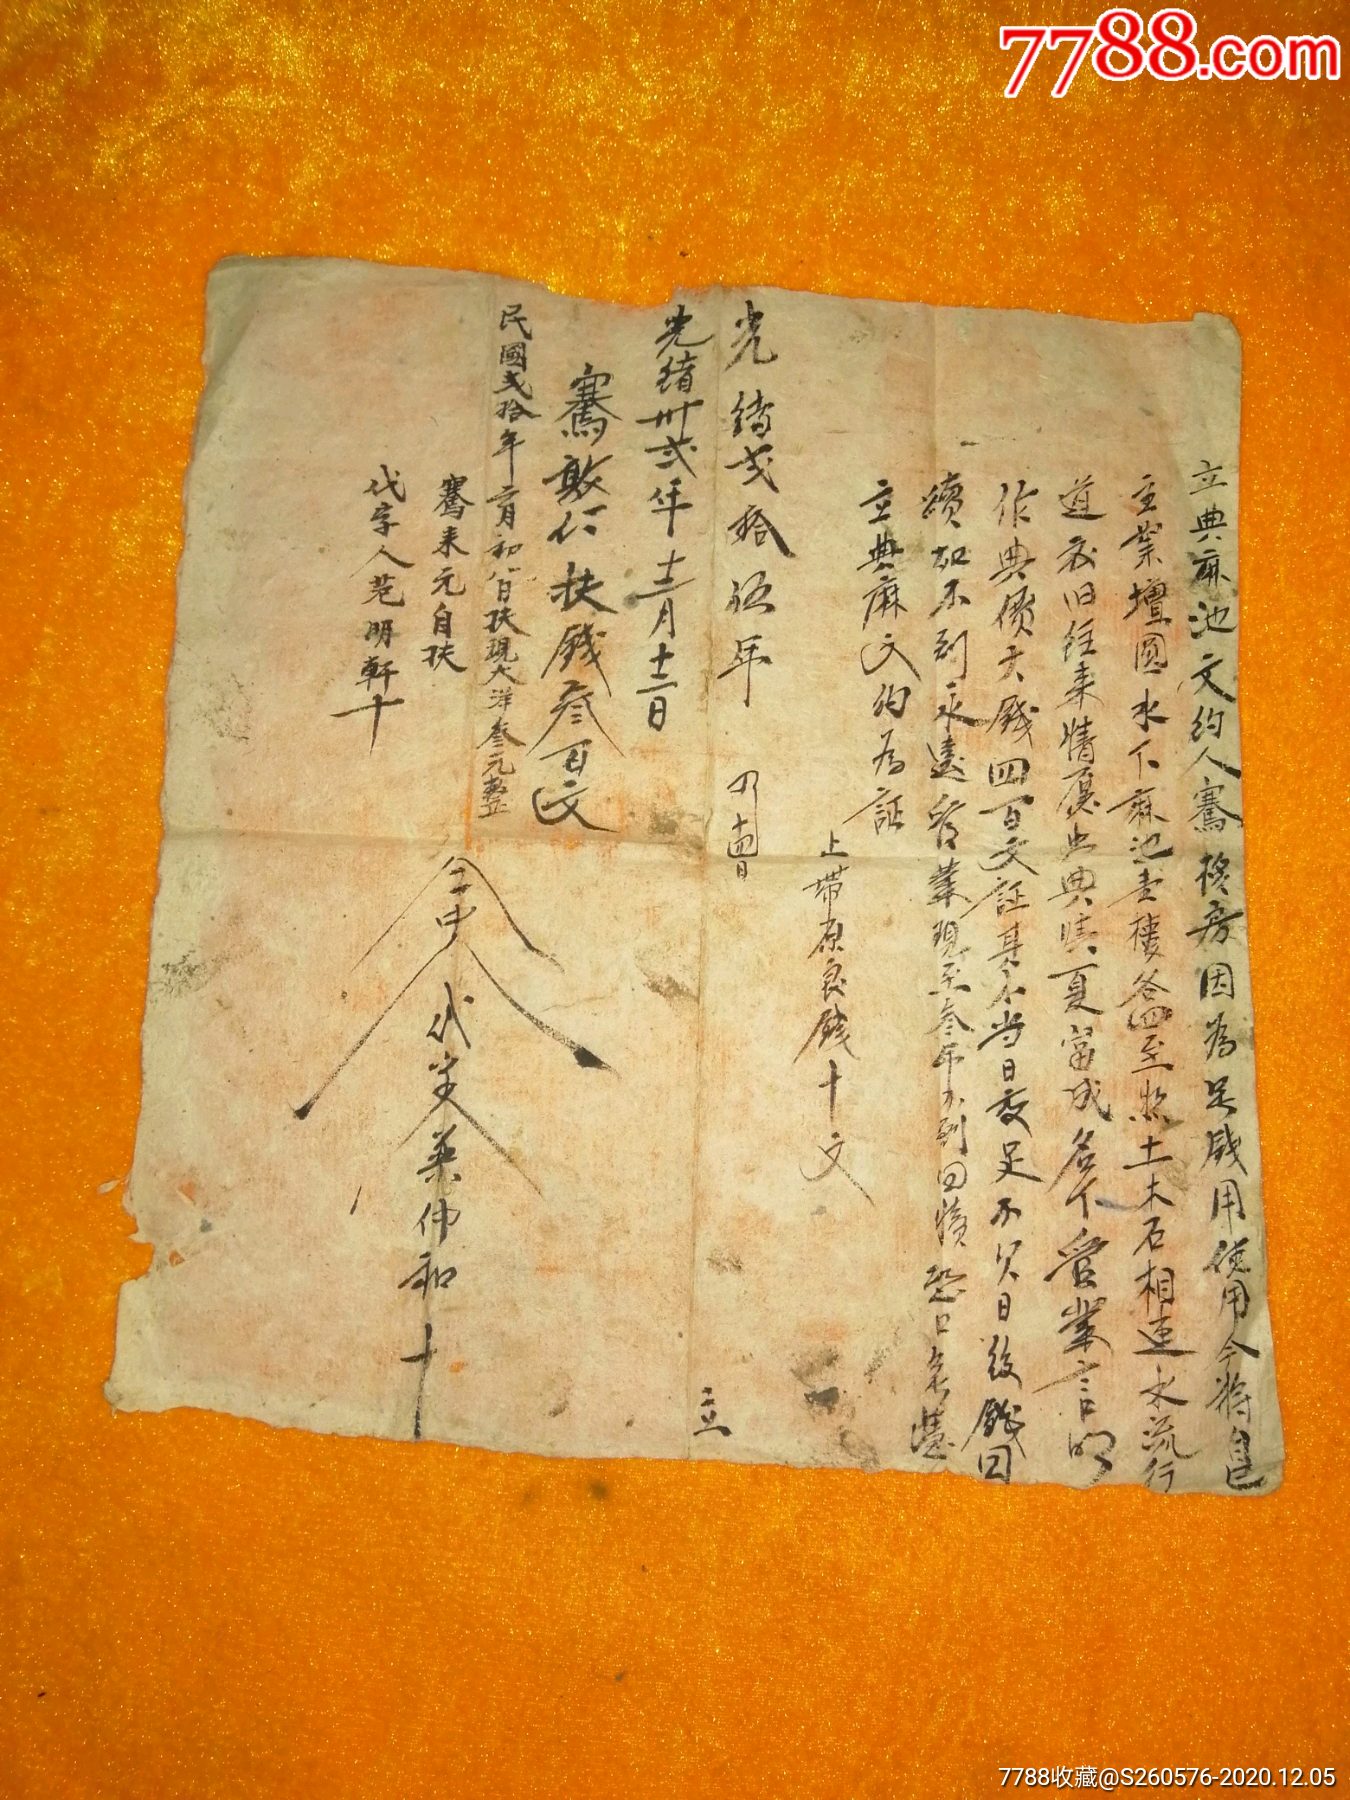 7788.com
立典麻池文约人騫 房因為足錢用使用今将自己
主業壇圓水下麻池壹 四至照土木石相連水流行
道 旧往来情愿出典 夏富成名下管業言明
作典價大錢四百文証 当日交足不欠日後錢回
續如不到永遠管業現至叁年不到回 恐口 憑
立典麻文约為証
上带原良錢十文
光緒弍拾伍年 十四日 立
光緒卅弍年十二月十二日
騫敦仁扶錢叁百文
民國弍拾年 月初八日扶現大洋叁元整
騫来元自扶
代字人范明軒十
仝中人代字 仲和十
7788收藏@S260576-2020.12.05